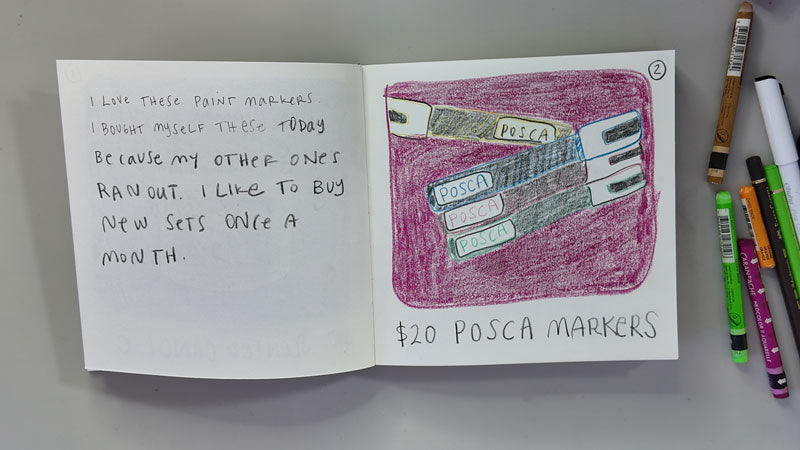 I LOVE THESE PAINT MARKERS.
I BOUGHT MYSELF THESE TODAY
BECAUSE MY OTHER ONES
RAN OUT. I LIKE TO BUY
NEW SETS ONCE A
MONTH.
2
POSCA
POSCA
POSCA
POSCA
$20 POSCA MARKERS
CARAN D'ACHE NEOCOLOR II AQUARELLE